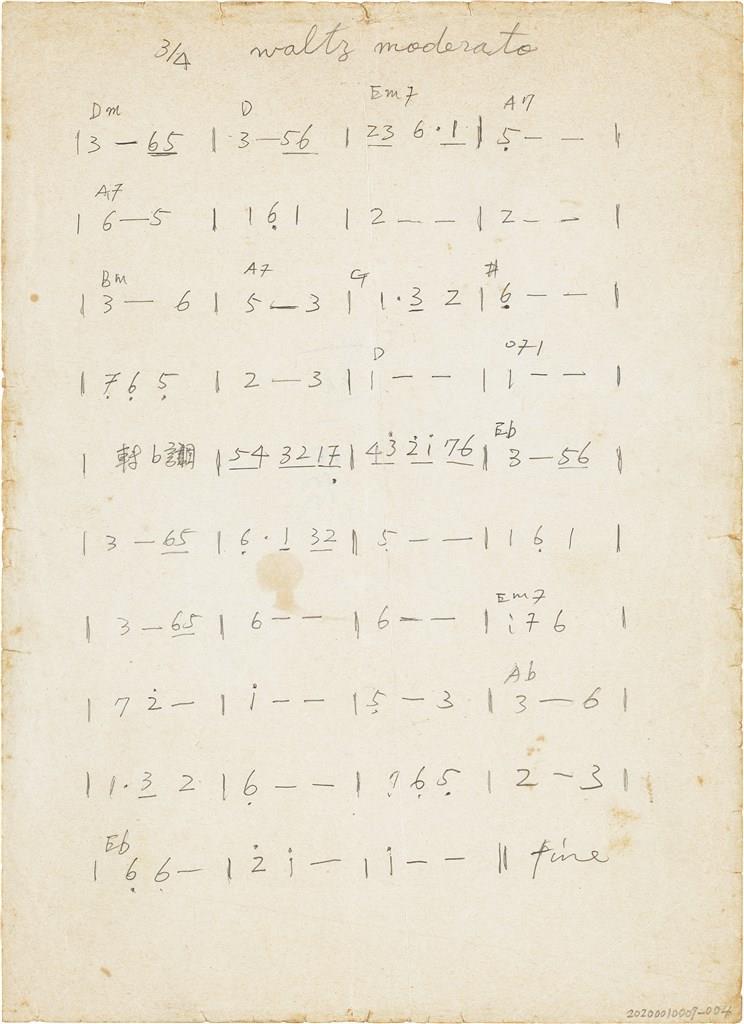 3/4 waltz moderato
Dm D Em7 A7
| 3 — 65 | 3 — 56 | 23 6 · 1 | 5 — — |
A7
| 6 — 5 | 1 6 1 | 2 — — | 2 — — |
Bm A7 G #
| 3 — 6 | 5 — 3 | 1 · 3 2 | 6 — — |
D
| 7 6 5 | 2 — 3 | 1 — — | 1 — — |
Eb
| 轉 b 調 | 54 3217 | 43 2i 76 | 3 — 56 |
| 3 — 65 | 6 · 1 32 | 5 — — | 1 6 1 |
Em7
| 3 — 65 | 6 — — | 6 — — | i 7 6 |
Ab
| 7 2 — | i — — | 5 — 3 | 3 — 6 |
| 1 · 3 2 | 6 — — | 7 6 5 | 2 — 3 |
Eb
| 6 6 — | 2 i — | i — — || fine
20200010007-004